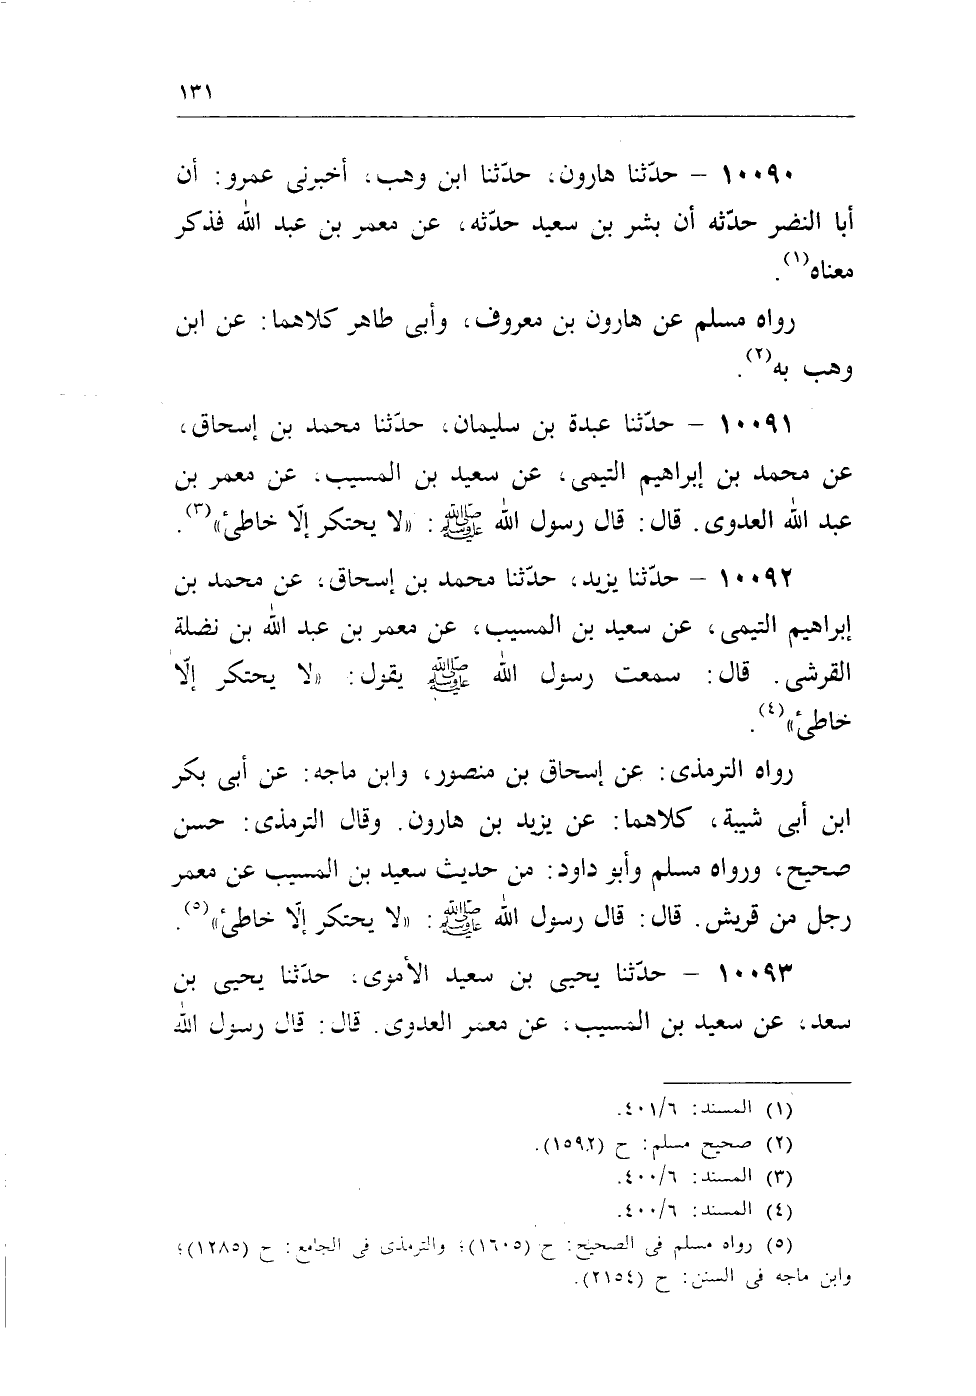 ١٣١
١٠٠٩٠ – حدّثنا هارون، حدّثنا ابن وهب، أخبرنى عمرو: أن
أبا النضر حدّثه أن بشر بن سعيد حدّثه، عن معمر بن عبد الله فذكر
معناه(١).
رواه مسلم عن هارون بن معروف، وأبى طاهر كلاهما: عن ابن
وهب به(٢).
١٠٠٩١ – حدّثنا عبدة بن سليمان، حدّثنا محمد بن إسحاق،
عن محمد بن إبراهيم التيمى، عن سعيد بن المسيب، عن معمر بن
عبد الله العدوى. قال: قال رسول الله ﷺ: «لا يحتكر إلّا خاطئ»(٣).
١٠٠٩٢ – حدّثنا يزيد، حدّثنا محمد بن إسحاق، عن محمد بن
إبراهيم التيمى، عن سعيد بن المسيب، عن معمر بن عبد الله بن نضلة
القرشى. قال: سمعت رسول الله ﷺ يقول: «لا يحتكر إلّا
خاطئ»(٤).
رواه الترمذى: عن إسحاق بن منصور، وابن ماجه: عن أبى بكر
ابن أبى شيبة، كلاهما: عن يزيد بن هارون. وقال الترمذى: حسن
صحيح، ورواه مسلم وأبو داود: من حديث سعيد بن المسيب عن معمر
رجل من قريش. قال: قال رسول الله ﷺ: «لا يحتكر إلّا خاطئ»(٥).
١٠٠٩٣ – حدّثنا يحيى بن سعيد الأموى، حدّثنا يحيى بن
سعد، عن سعيد بن المسيب، عن معمر العدوى. قال: قال رسول الله
(١) المسند: ٤٠١/٦.
(٢) صحيح مسلم: ح (١٥٩٢).
(٣) المسند: ٤٠٠/٦.
(٤) المسند: ٤٠٠/٦.
(٥) رواه مسلم فى الصحيح: ح (١٦٠٥)؛ والترمذى فى الجامع: ح (١٢٨٥)؛
وابن ماجه فى السنن: ح (٢١٥٤).